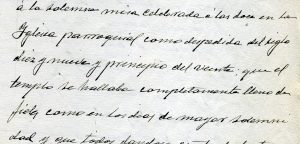 a la solemne misa celebrada á las doce en la
Iglesia parroquial como despedida del siglo
diez y nueve y principio del veinte; que el
templo se hallaba completamente lleno de
fieles como en los dias de mayor solemni
dad y que todos